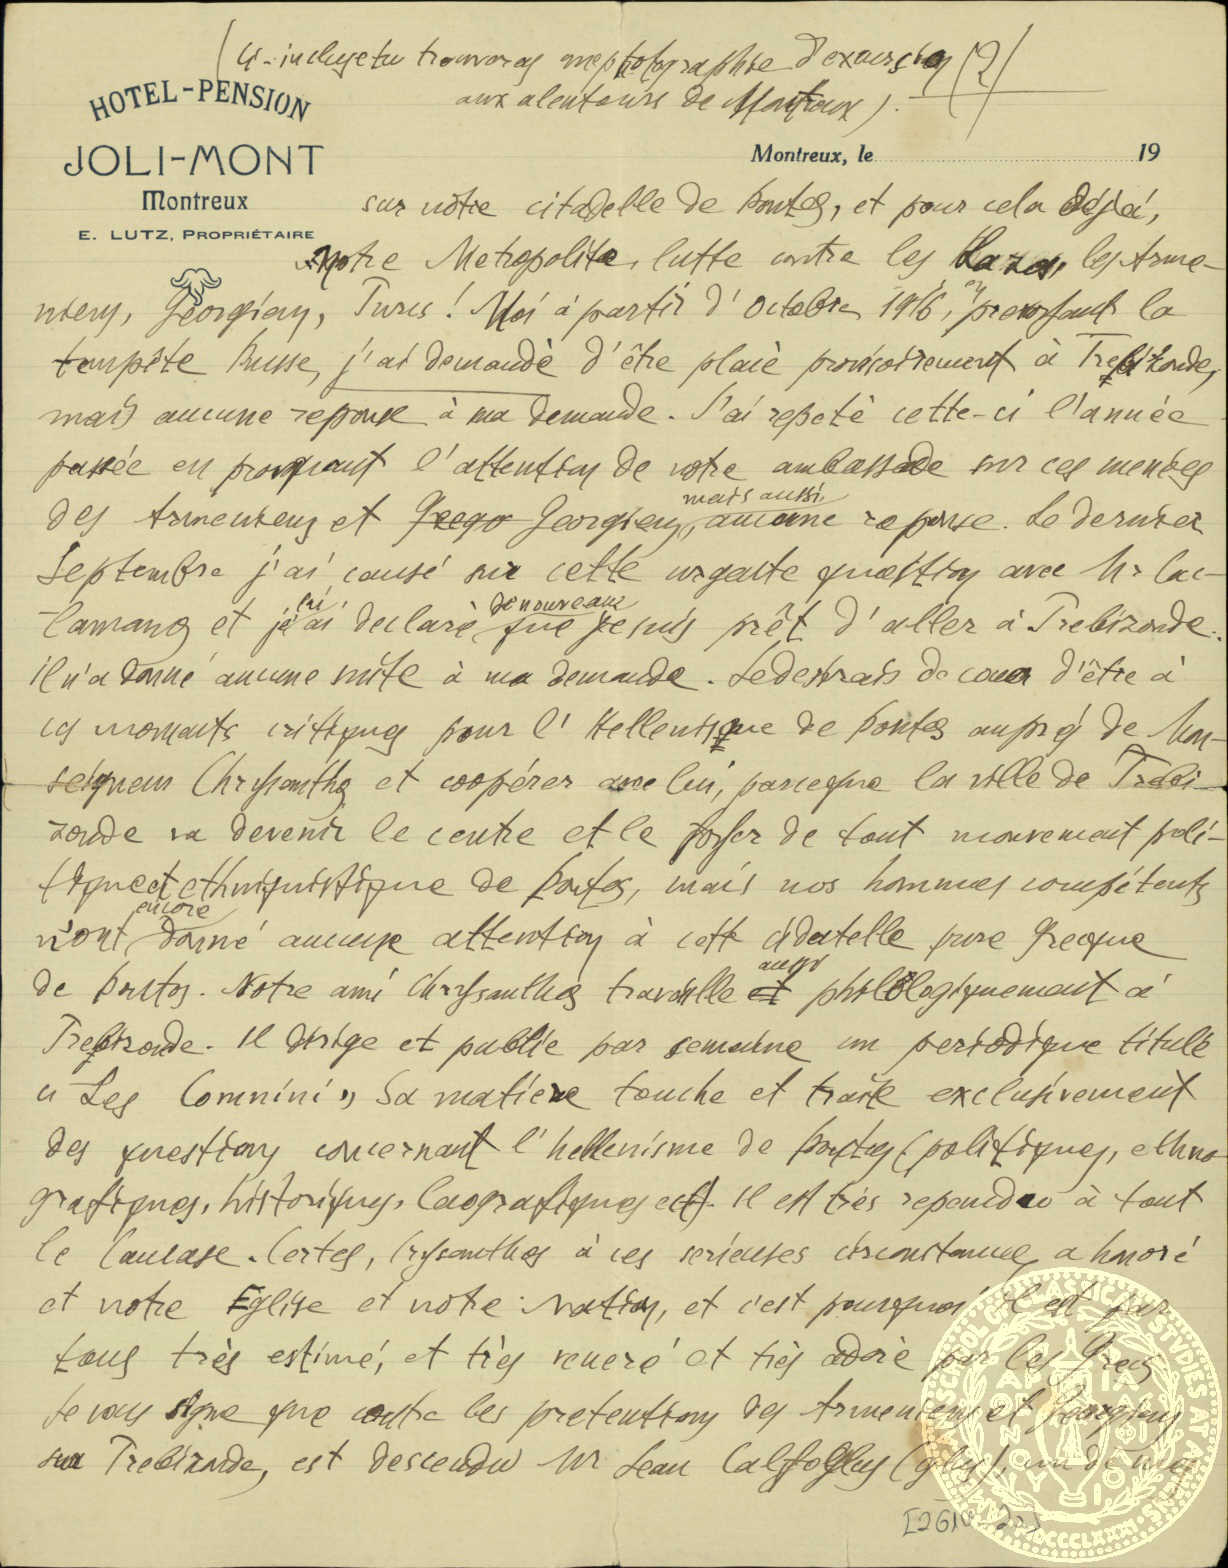 (Ci-incluse tu trouveras ma photographie d'excursion (2)
aux alentours de Montreux).
HOTEL-PENSION
JOLI-MONT
Montreux
E. LUTZ, PROPRIÉTAIRE
Montreux, le 19
sur nôtre citadelle de Pontos, et pour cela déjà,
Notre Metropolite, lutte contre les Lazes, les Arme-
niens, Georgiens, Turcs! Moi à partir d'Octobre 1916, en prevoyant la
tempête Russe, j'ai demandè d'être placè provisoirement à Trebizonde,
mais aucune reponse à ma demande. J'ai repetè cette-ci l'année
passée en provoquant l'attention de notre ambassade sur ces menées
des Armeniens et Grego Georgiens, mais aussi aucune reponse. Le dernier
Septembre j'ai causé sur cette urgente question avec Mr Cac-
lamanos et je lui ai declarè de nouveau que je suis prêt d'aller à Trebizonde.
il n'a donné aucune suite à ma demande. Je desirais de coeur d'être à
ces moments critiques pour l'Hellenisme de Pontos auprès de Mon-
seigneur Chrysanthos et coopérer avec lui, parceque la ville de Trebi-
zonde va devenir le centre et le foyer de tout mouvement poli-
tique et ethniquistique de Pontos, mais nos hommes compétents
n'ont encore donné aucune attention à cette cidatelle pure Grecque
de Pontos. Notre ami Chrysanthos travaille et aussi philologiquement à
Trebizonde. Il dirige et publie par semaine un periodique titulé
« Les Comnini » Sa matiere touche et traite exclusivement
des questions concernant l'hellenisme de Pontos (politiques, ethno-
grafiques, historiques, laografiques ect). Il est très rependu à tout
le Caucase. Certes, Crysanthos à ces serieuses circonstances a honoré
et notre Eglise et nôtre Nation, et c'est pourquoi il est par
tous très estimé, et très veneré et très adorè par les Grecs
Je vous signe que contre les pretentions des Armeniens et Georgiens
sur Trebizonde, est descendu Mr Jean Calfoglus (glus), un de mes